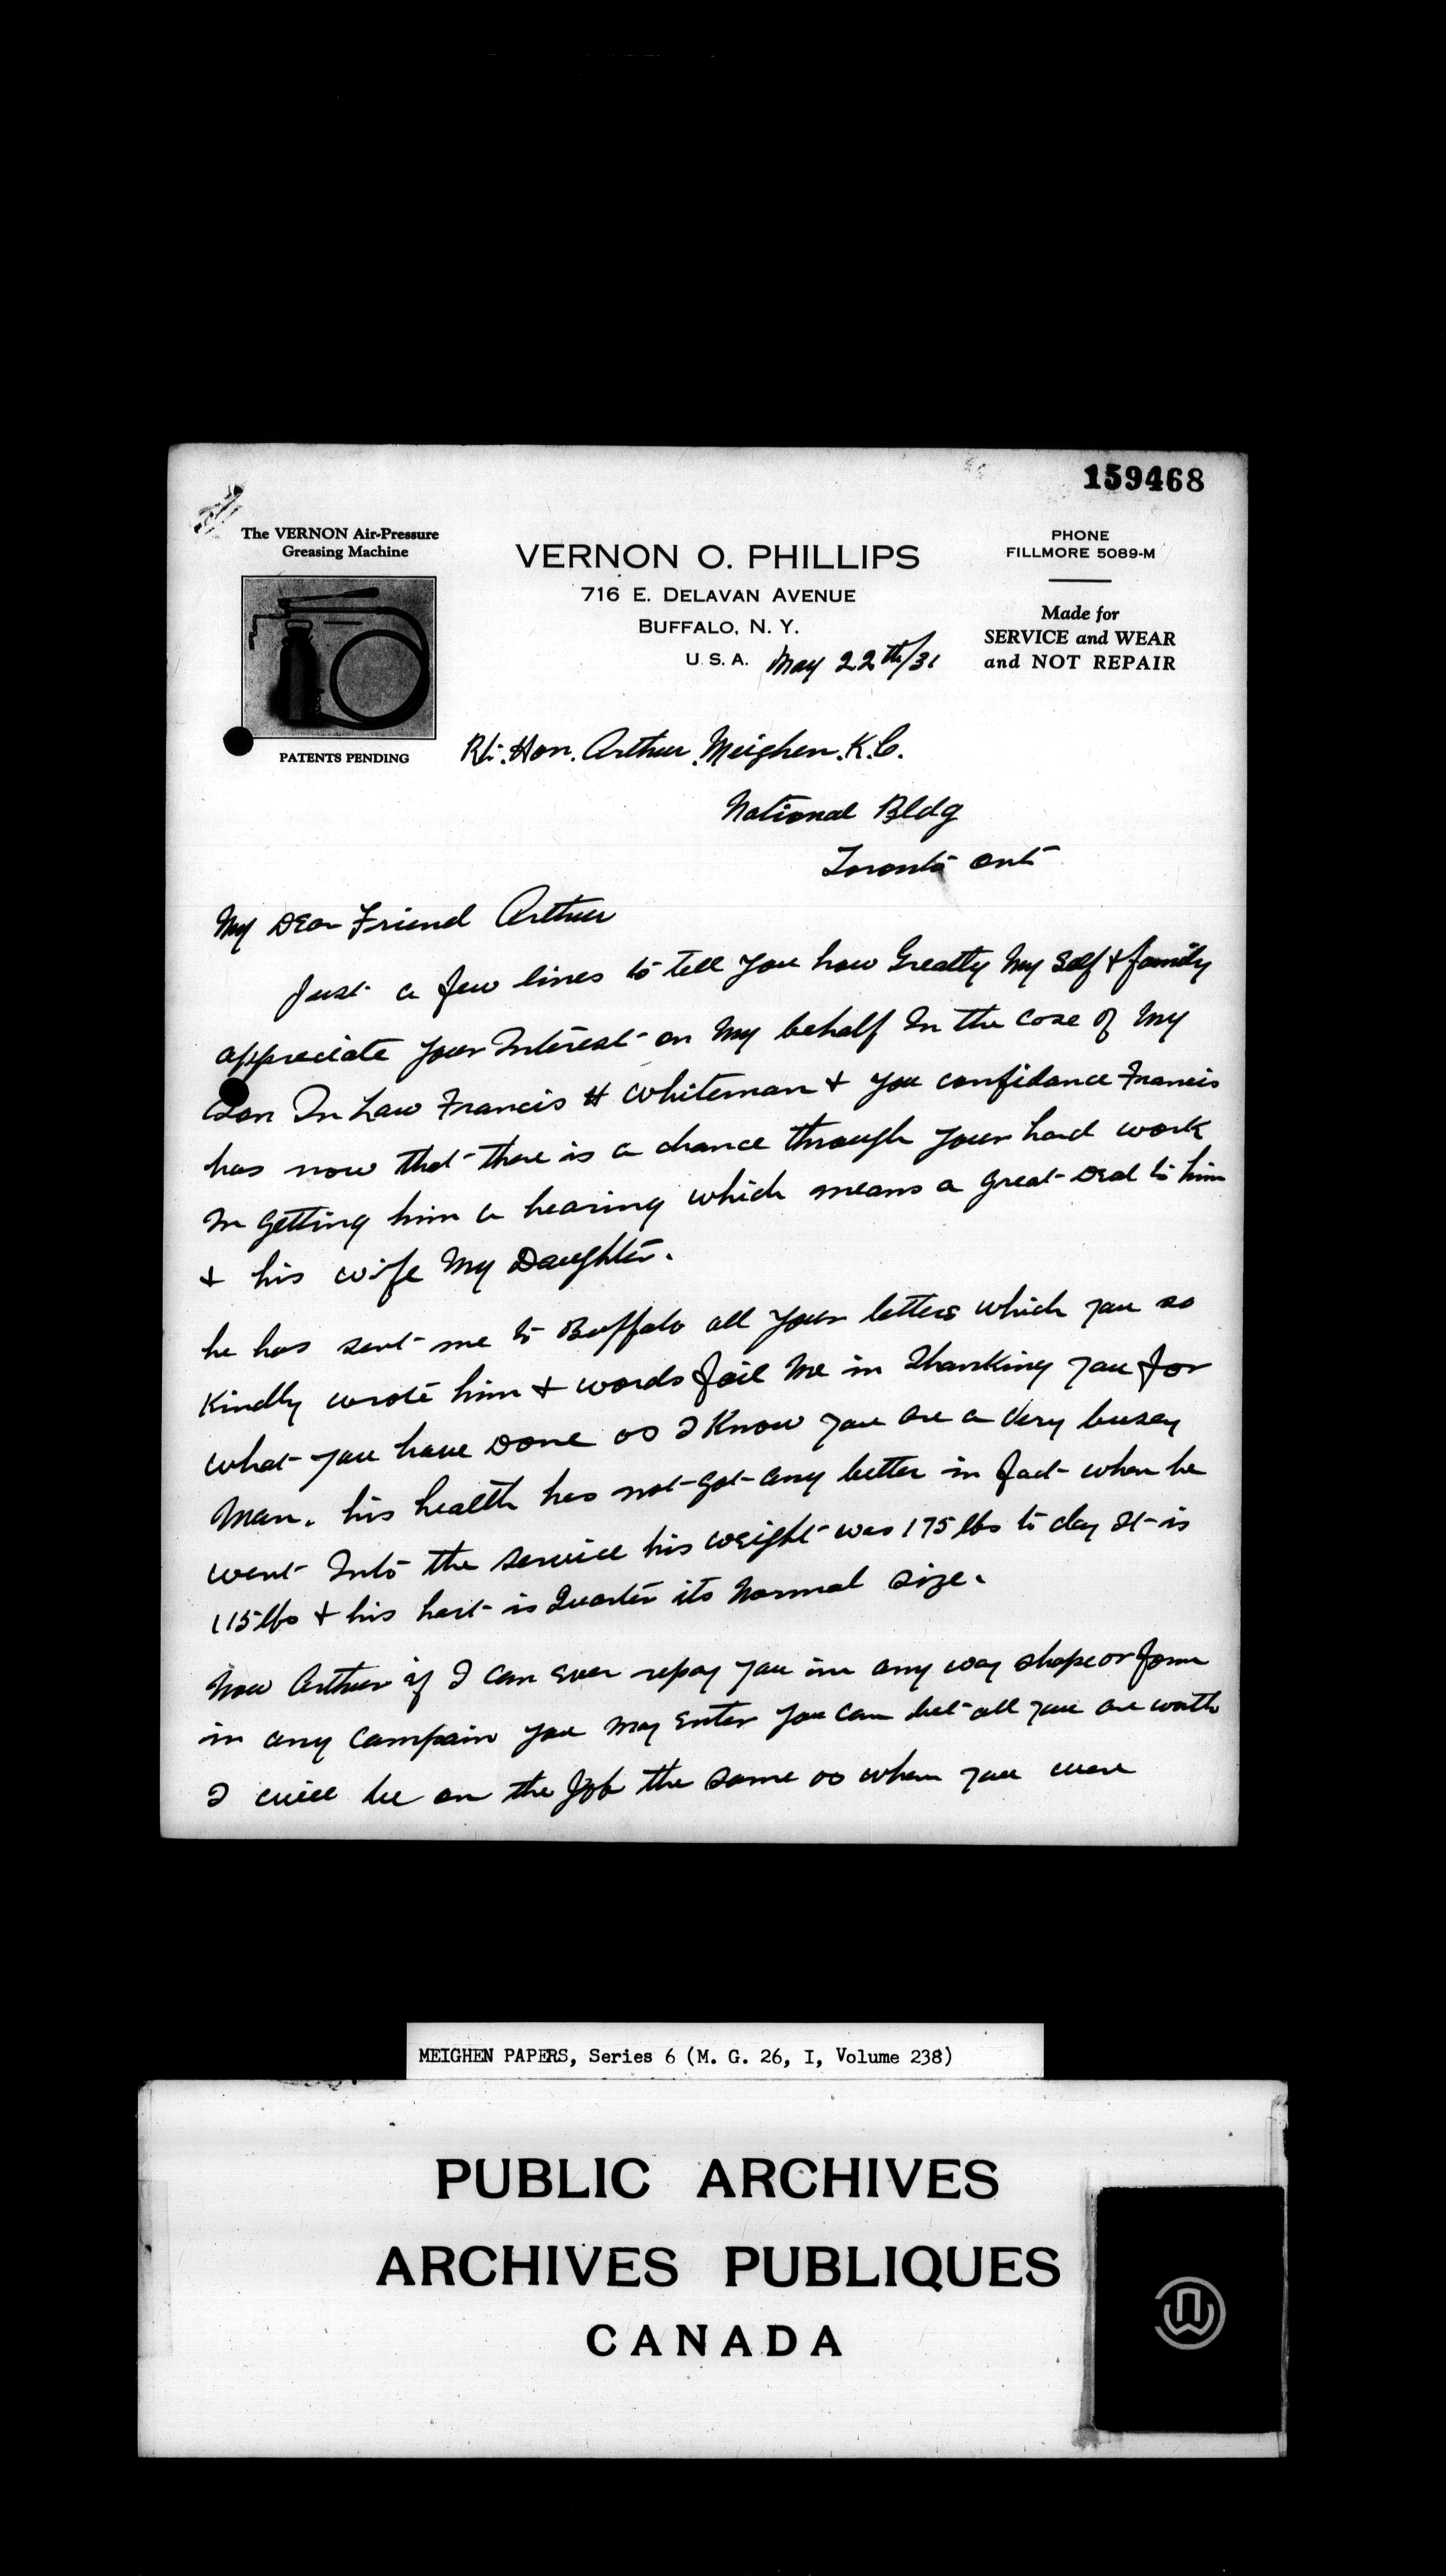 159468
The VERNON Air-Pressure
Greasing Machine
PATENTS PENDING
VERNON O. PHILLIPS
716 E. DELAVAN AVENUE
BUFFALO, N. Y.
U. S. A. May 22th/31
PHONE
FILLMORE 5089-M
Made for
SERVICE and WEAR
and NOT REPAIR
Rt. Hon. Arthur Meighen. K.C.
National Bldg
Toronto Ont
My Dear Friend Arthur
Just a few lines to tell you how Greatly My Self & family
appreciate your Interest on My behalf In the case of My
Son In Law Francis H Whiteman & you confidance Francis
has now that there is a chance through your hard work
In getting him a hearing which means a great Deal to him
& his wife My Daughter.
he has sent me to Buffalo all your letters which you so
Kindly wrote him & words fail Me in Thanking you for
what you have Done as I Know you are a Very busey
Man. his health has not got any better in fact when he
went Into the Service his weight was 175 lbs to day It is
115 lbs & his hart is Quarter its Normal size.
Now Arthur if I can Ever repay you in any way shape or form
in any Campain you May Enter you can bet all you are worth
I will be on the Job the same as when you were
MEIGHEN PAPERS, Series 6 (M. G. 26, I, Volume 238)
PUBLIC ARCHIVES
ARCHIVES PUBLIQUES
CANADA